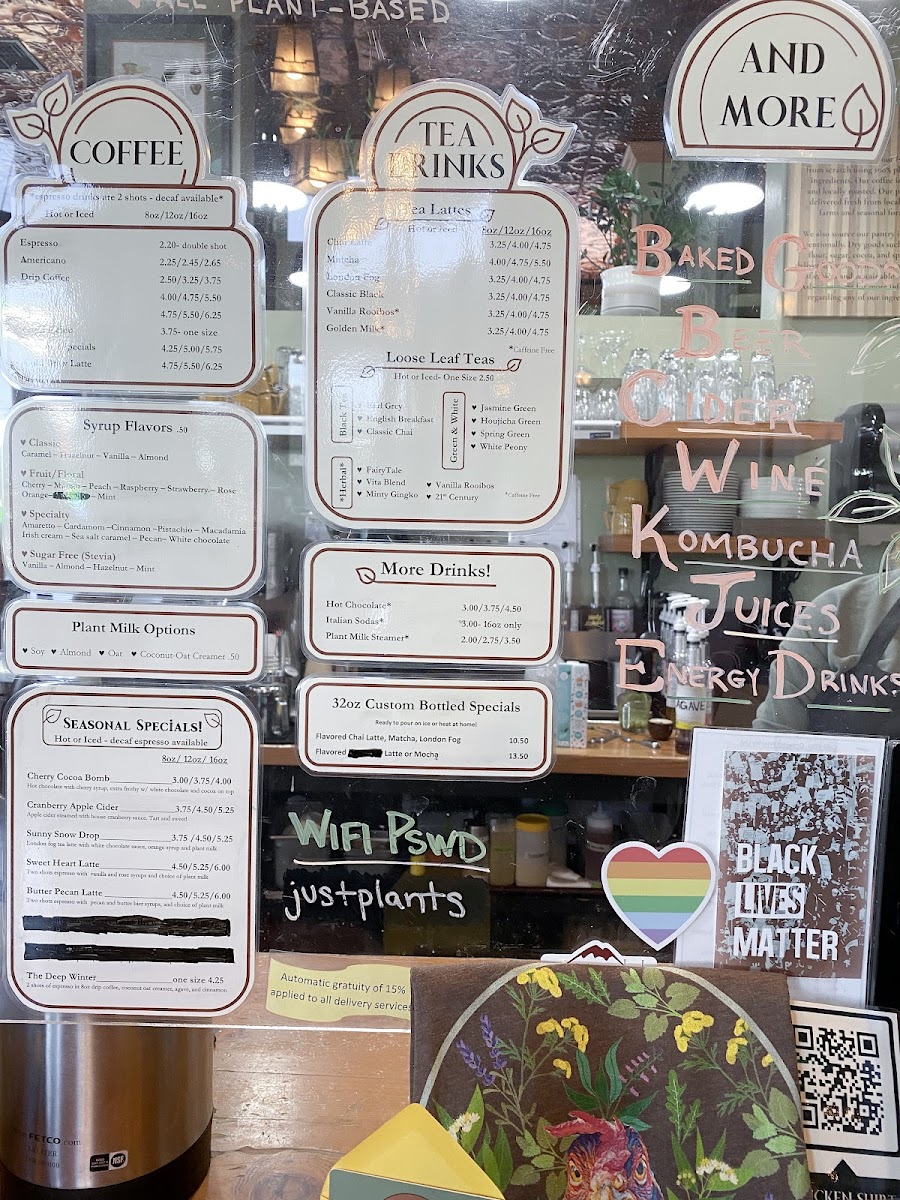 ALL PLANT-BASED
COFFEE
*espresso drinks are 2 shots - decaf available*
Hot or Iced 8oz/12oz/16oz
Espresso 2.20- double shot
Americano 2.25/2.45/2.65
Drip Coffee 2.50/3.25/3.75
4.00/4.75/5.50
4.75/5.50/6.25
3.75- one size
Specials 4.25/5.00/5.75
Latte 4.75/5.50/6.25
Syrup Flavors .50
♥ Classic
Caramel – Hazelnut – Vanilla – Almond
♥ Fruit/Floral
Cherry – Mango – Peach – Raspberry – Strawberry – Rose
Orange – Mint
♥ Specialty
Amaretto – Cardamom – Cinnamon – Pistachio – Macadamia
Irish cream – Sea salt caramel – Pecan – White chocolate
♥ Sugar Free (Stevia)
Vanilla – Almond – Hazelnut – Mint
Plant Milk Options
♥ Soy ♥ Almond ♥ Oat ♥ Coconut-Oat Creamer .50
Seasonal Specials!
Hot or Iced - decaf espresso available
8oz/ 12oz/ 16oz
Cherry Cocoa Bomb 3.00/3.75/4.00
Hot chocolate with cherry syrup, extra frothy w/ white chocolate and cocoa on top
Cranberry Apple Cider 3.75/4.50/5.25
Apple cider steamed with house cranberry sauce. Tart and sweet!
Sunny Snow Drop 3.75 /4.50/5.25
London fog tea latte with white chocolate sauce, orange syrup and plant milk
Sweet Heart Latte 4.50/5.25/6.00
Two shots espresso with vanilla and rose syrups and choice of plant milk
Butter Pecan Latte 4.50/5.25/6.00
Two shots espresso with pecan and butter bier syrups, and choice of plant milk
The Deep Winter one size 4.25
2 shots of espresso in 8oz drip coffee, coconut oat creamer, agave, and cinnamon
TEA
DRINKS
Tea Lattes
Hot or Iced 8oz/12oz/16oz
Chai Latte 3.25/4.00/4.75
Matcha 4.00/4.75/5.50
London Fog 3.25/4.00/4.75
Classic Black 3.25/4.00/4.75
Vanilla Rooibos* 3.25/4.00/4.75
Golden Milk* 3.25/4.00/4.75
*Caffeine Free
Loose Leaf Teas
Hot or Iced- One Size 2.50
Black Tea
♥ Earl Grey
♥ English Breakfast
♥ Classic Chai
Green & White
♥ Jasmine Green
♥ Houjicha Green
♥ Spring Green
♥ White Peony
*Herbal*
♥ FairyTale
♥ Vita Blend
♥ Minty Gingko
♥ Vanilla Rooibos
♥ 21st Century
*Caffeine Free
More Drinks!
Hot Chocolate* 3.00/3.75/4.50
Italian Sodas* *3.00- 16oz only
Plant Milk Steamer* 2.00/2.75/3.50
32oz Custom Bottled Specials
Ready to pour on ice or heat at home!
Flavored Chai Latte, Matcha, London Fog 10.50
Flavored Latte or Mocha 13.50
WIFI PSWD
justplants
Automatic gratuity of 15%
applied to all delivery services
AND
MORE
BAKED GOODS
BEER
CIDER
WINE
KOMBUCHA
JUICES
ENERGY DRINKS
AGAVE
BLACK
LIVES
MATTER
FETCO.com
NSF